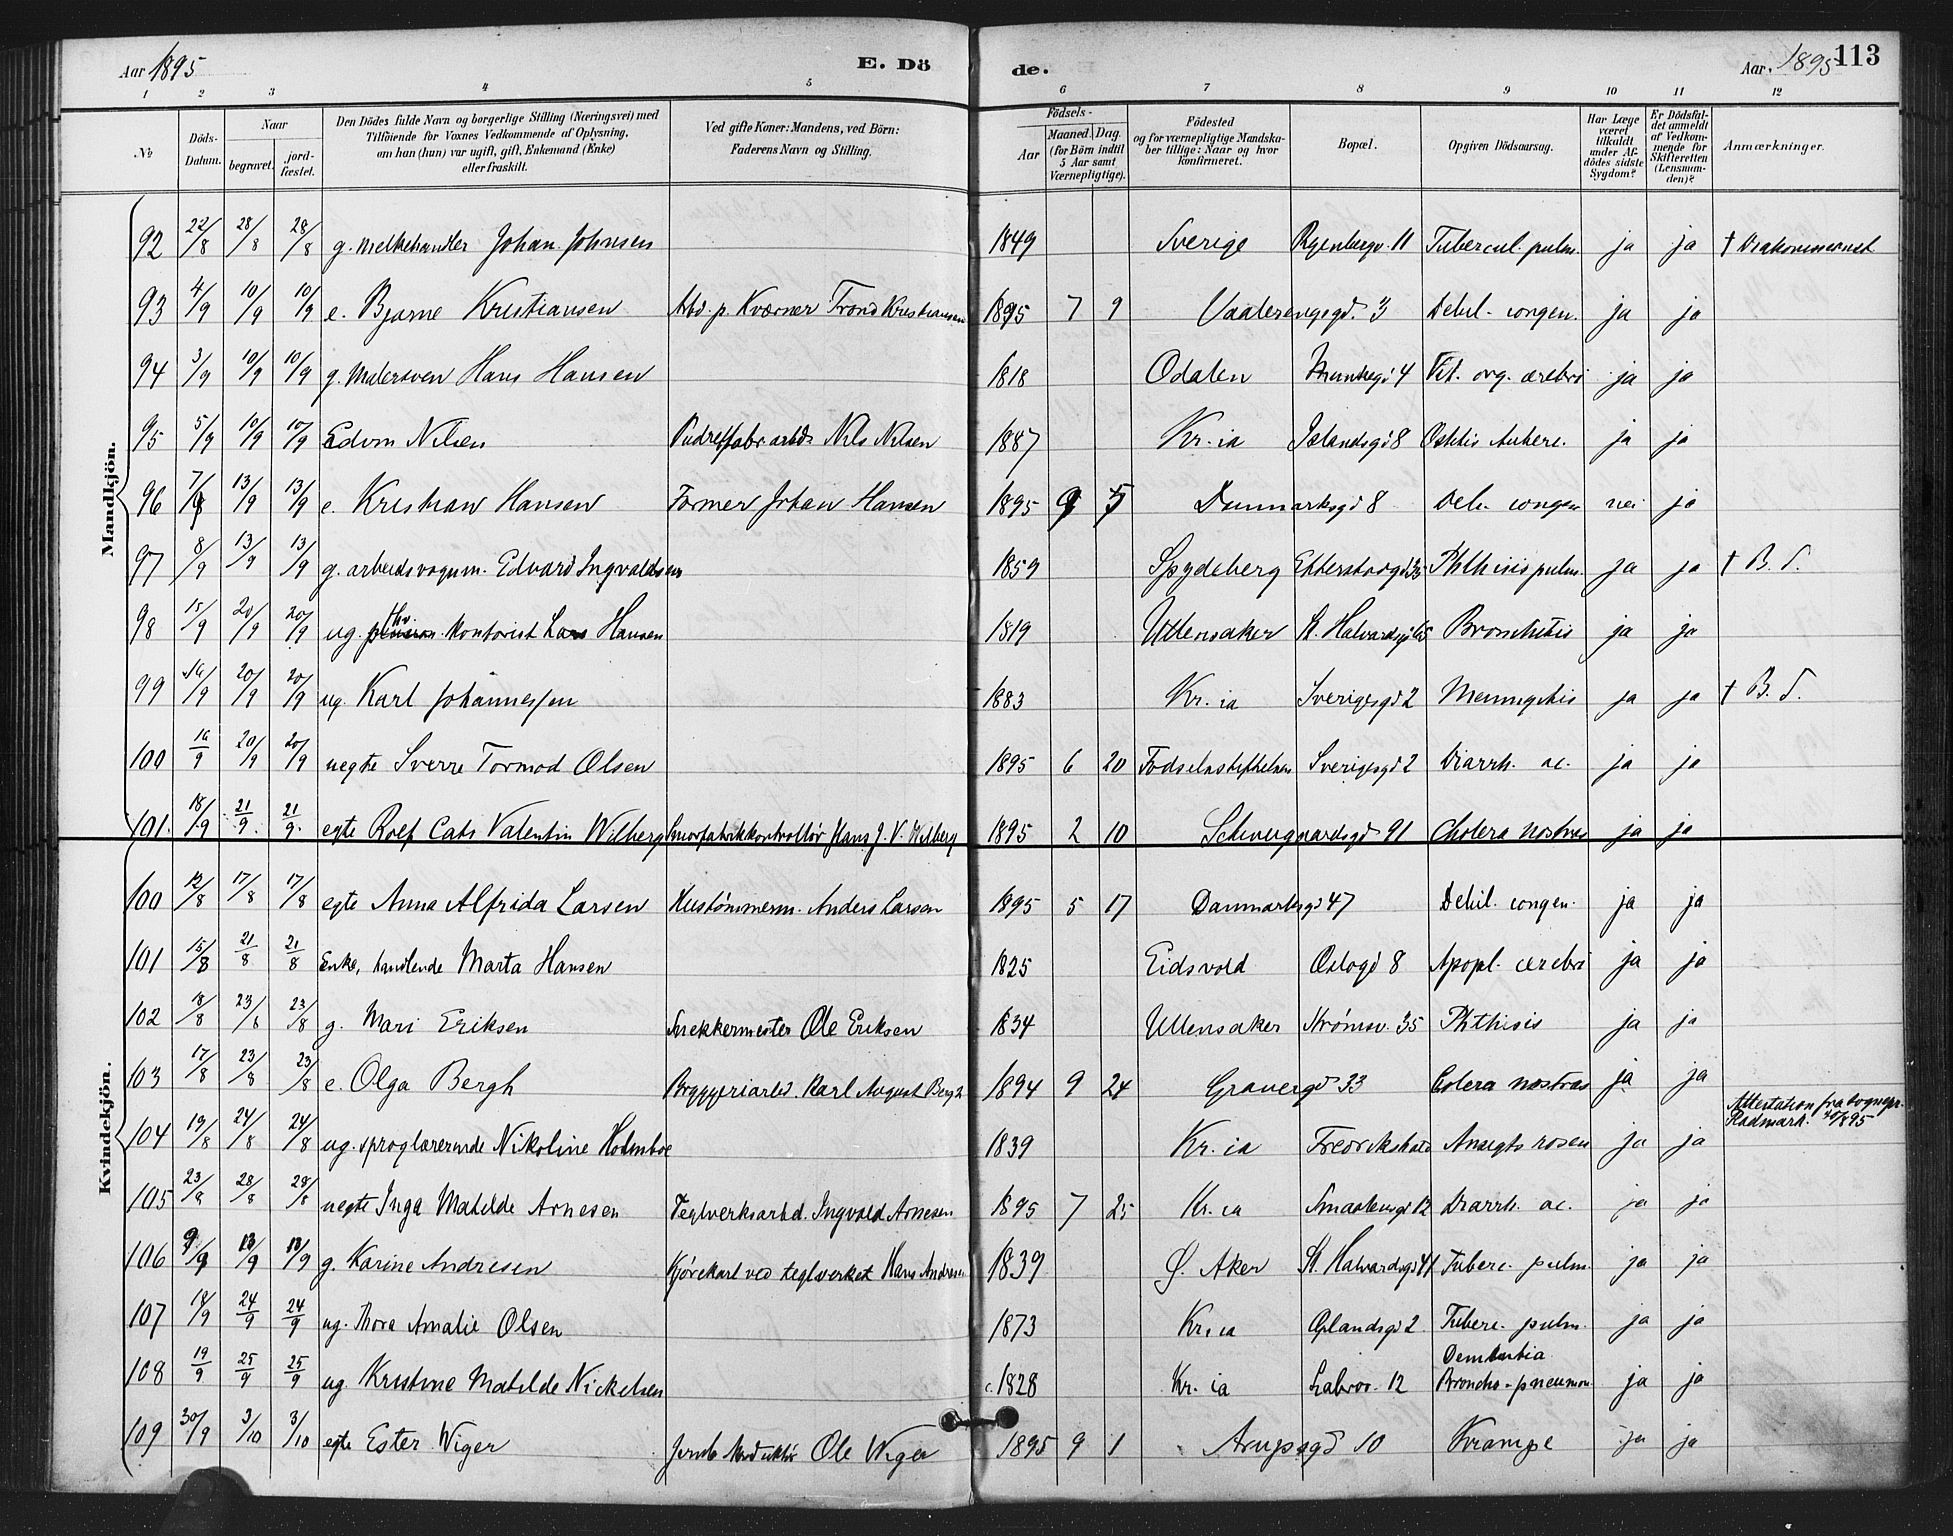 Aar 1895 E. Dö de. Aar 1895 113
1 2 3 4 5 6 7 8 9 10 11 12
№ Döds-Datum. Naar begravet. jord-fæstet. Den Dödes fulde Navn og borgerlige Stilling (Næringsvei) med Tilföiende for Voxnes Vedkommende af Oplysning, om han (hun) var ugift, gift, Enkemand (Enke) eller fraskilt. Ved gifte Koner: Mandens, ved Börn: Faderens Navn og Stilling. Födsels- Aar Maaned. Dag. (for Börn indtil 5 Aar samt Værnepligtige). Födested og for værnepligtige Mandska-ber tillige: Naar og hvor konfirmeret. Bopæl. Opgiven Dödsaarsag. Har Læge været tilkaldt under Af-dödes sidste Sygdom? Er Dödsfal-det anmeldt af Vedkom-mende for Skifteretten (Lensman-den)? Anmærkninger.
Mandkjön.
92 22/8 28/8 28/8 g. melkehandler Johan Johnsen 1849 Sverige Ryenbergv. 11 Tubercul. pulm. ja ja † Diakonissernat
93 4/9 10/9 10/9 e. Bjarne Kristiansen Arbd. p. Kværner Trond Kristiansen 1895 7 9 Vaalerengsgd. 3 Debil. congen. ja ja
94 3/9 10/9 10/9 g. Malersven Hans Hansen 1818 Odalen Munkegd 4 Vit. org. cerebri ja ja
95 5/9 10/9 10/9 Edvin Nilsen Pudretfabr.arbd. Nils Nilsen 1887 Kr.ia Islandsgd 8 Ostitis tuberc. ja ja
96 7/9 13/9 13/9 e. Kristian Hansen Former Johan Hansen 1895 9 5 Danmarksgd 8 Deb. congen nei ja
97 8/9 13/9 13/9 g. arbeidsvognm. Edvard Ingvaldsen 1859 Spydeberg Etterstadgd 35 Phthisis pulm. ja ja † B. S.
98 15/9 20/9 20/9 ug. fhv. kontorist Lars Hansen 1819 Ullensaker St. Halvardsgd 65 Bronchitis ja ja
99 16/9 20/9 20/9 ug. Karl Johannessen 1883 Kr.ia Sverigesgd 2 Meningitis ja ja † B. S.
100 16/9 20/9 20/9 uegte Sverre Tormod Olsen 1895 6 20 Fødselsstiftelsen Sverigesgd 2 Diarrh. ac. ja ja
101. 18/9 21/9 21/9 egte Rolf Cats Valentin Wilberg Smørfabrikkontrollør Hans J. V. Wilberg 1895 2 10 Schweigaardsgd 91 Cholera nostras ja ja
Kvindekjön.
100 12/8 17/8 17/8 egte Anna Alfrida Larsen Hustømmerm. Anders Larsen 1895 5 17 Danmarksgd 47 Debil. congen. ja ja
101 15/8 21/8 21/8 Enke, handlende Marta Hansen 1825 Eidsvold Oslogd 8 Apopl. cerebri ja ja
102 18/8 23/8 23/8 g. Mari Eriksen Snekkermester Ole Eriksen 1834 Ullensaker Strømsv. 35 Phthisis ja ja
103 17/8 23/8 23/8 e. Olga Bergh Bryggeriarbd. Karl August Bergh 1894 9 24 Gravergd 33 Colera nostras ja ja
104 19/8 24/8 24/8 ug. sproglærerinde Nikoline Holmboe 1839 Kr.ia Fredrikshald Ansigtsrosen ja ja Attestation fra sognepr. Radmark. 20/8 95
105 23/8 28/8 28/8 uegte Inga Matilde Arnesen Teglverksarbd. Ingvald Arnesen 1895 7 25 Kr.ia Smaalensgd 12 Diarrh. ac. ja ja
106 9/9 13/9 13/9 g. Karine Andresen Kjørekarl ved teglverket Hans Andresen 1839 Ø. Aker St. Halvardsgd 41 Tuberc. pulm. ja ja
107 18/9 24/9 24/9 ug. Thora Amalie Olsen 1873 Kr.ia Oplandsgd 2 Tuberc. pulm. ja ja
108 19/9 25/9 25/9 ug Kristine Matilde Nickelsen c. 1828 Kr.ia Labrov. 12 Dementia Broncho-pneumon. ja ja
109 30/9 3/10 3/10 egte Ester Wiger Ole Wiger 1895 9 1 Arupsgd 10 Krampe ja ja